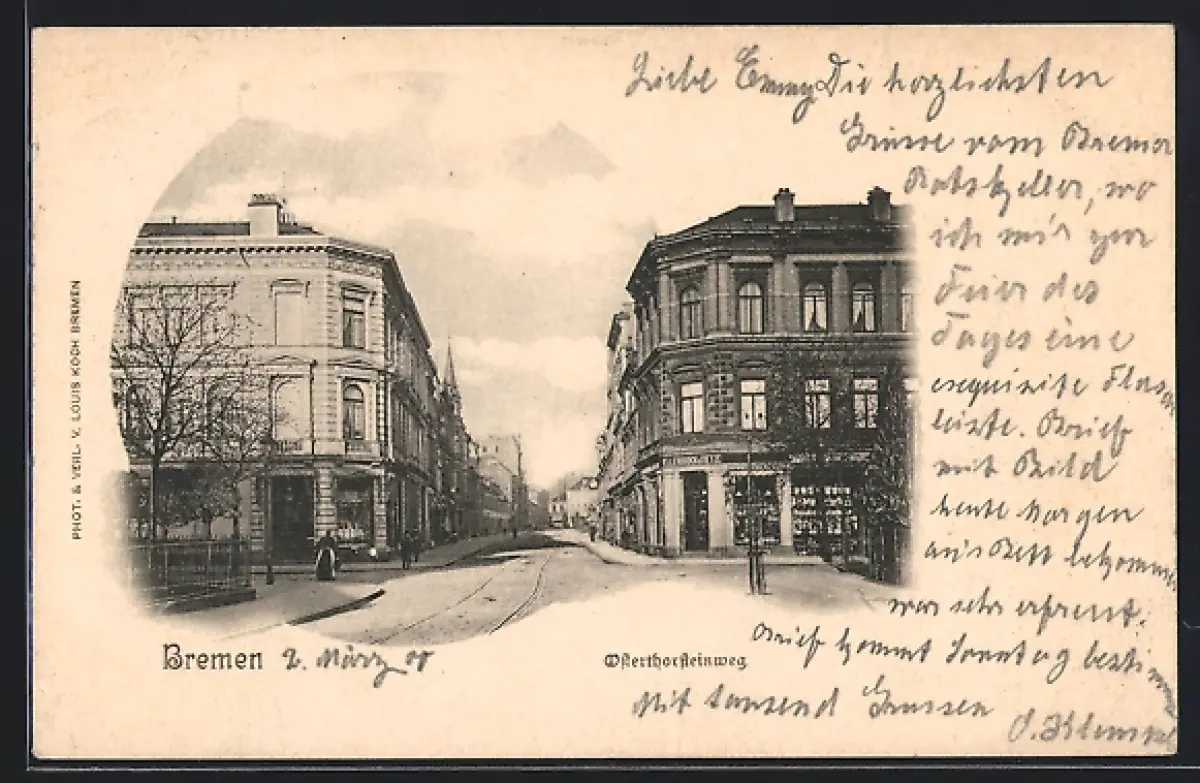 Liebe Emmy Die herzlichsten
Grüsse vom Bremer
Ratskeller, wo
ich mir zur
Feier des
Tages eine
exquisite Flasche
leiste. Brief
mit Bild
heute Morgen
ans Bett bekommen
war sehr erfreut.
Brief kommt Sonntag bestimmt
Mit tausend Grüssen
PHOT. & VERL. V. LOUIS KOCH BREMEN
Bremen 2. März 00
Osterthorsteinweg